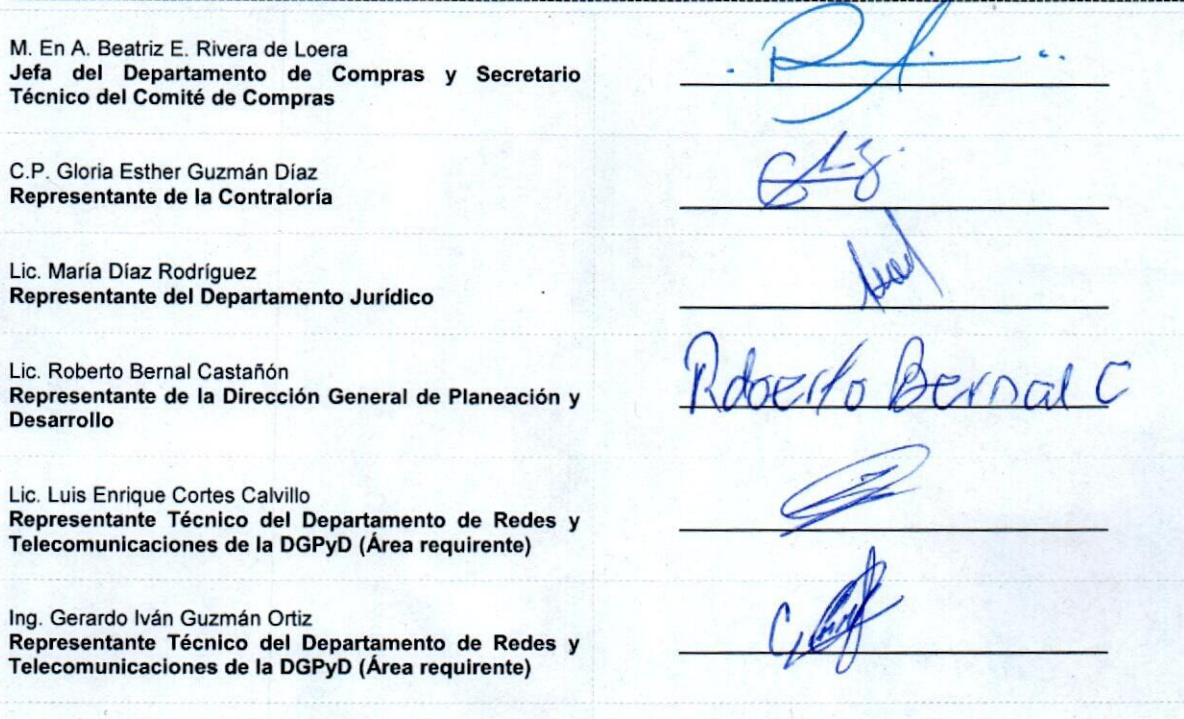 M. En A. Beatriz E. Rivera de Loera
Jefa del Departamento de Compras y Secretario
Técnico del Comité de Compras
C.P. Gloria Esther Guzmán Díaz
Representante de la Contraloría
Lic. María Díaz Rodríguez
Representante del Departamento Jurídico
Lic. Roberto Bernal Castañón
Representante de la Dirección General de Planeación y
Desarrollo
Roberto Bernal C
Lic. Luis Enrique Cortes Calvillo
Representante Técnico del Departamento de Redes y
Telecomunicaciones de la DGPyD (Área requirente)
Ing. Gerardo Iván Guzmán Ortiz
Representante Técnico del Departamento de Redes y
Telecomunicaciones de la DGPyD (Área requirente)